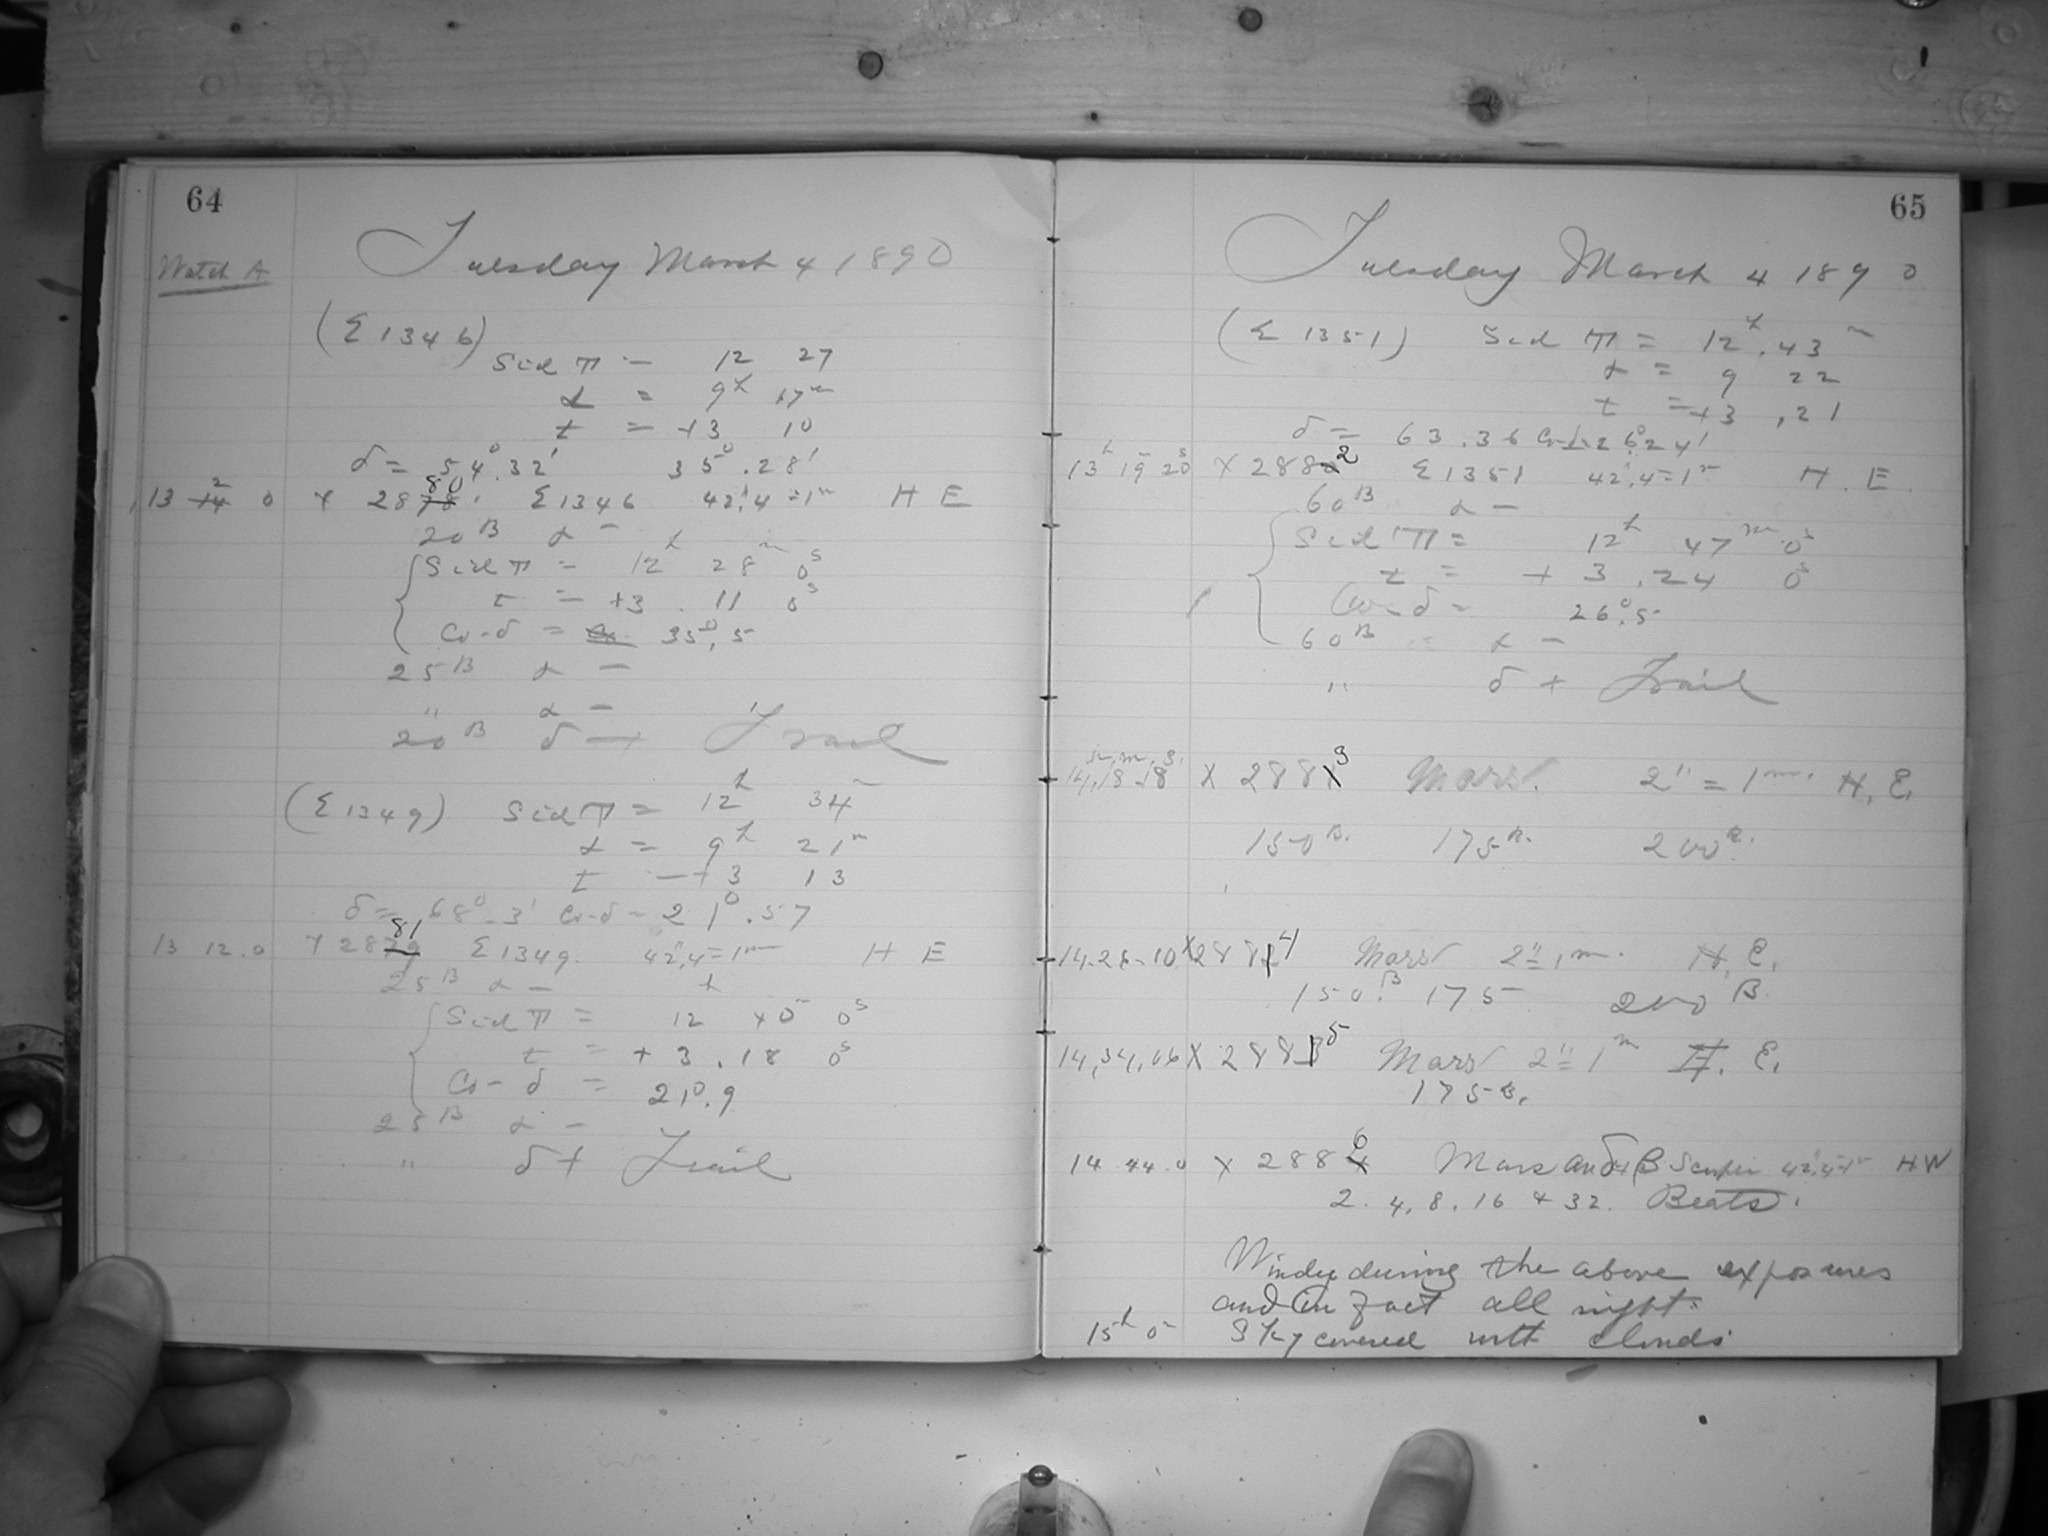 64
Watch A
Tuesday March 4 1890
(Σ 1346)
Sid T = 12 27
α = 9h 17m
t = +3 10
δ = 54°.32' 35°.28'
13 2 0 × 2880 Σ1346 42".4=1m H E
20 B α −
Sid T = 12h 28m 0s
t = +3 . 11 0s
Co-δ = 35°.5
25 B α −
" α −
20 B δ + Trail
(Σ 1349) Sid T = 12h 34m
α = 9h 21m
t = +3 13
δ = 68°.3' Co-δ = 21°.57
13 12.0 × 2881 Σ1349. 42".4=1m H E
25 B α −
Sid T = 12h 40m 0s
t = +3.18 0s
Co-δ = 21°.9
25 B α −
" δ + Trail
65
Tuesday March 4 1890
(Σ 1351) Sid T = 12h.43m
α = 9 22
t = +3 .21
δ = 63.36 Co-δ=26°24'
13h 19m 20s × 2882 Σ1351 42".4=1m H. E.
60 B α −
Sid T = 12h 47m 0s
t = +3.24 0s
Co-δ = 26°.5
60 B α −
" δ + Trail
h. m. s.
14.18-18 × 2883 Mars. 2" = 1m. H. E.
150 B. 175 B. 200 B.
14.26-10 × 2884 Mars 2"=1m. H. E.
150 B 175 200 B.
14,34,06 × 2885 Mars 2"=1m H. E.
175 B.
14 44.0 × 2886 Mars and β Scorpii 42".4=1m HW
2. 4, 8, 16 & 32. Beats.
Windy during the above exposures
and in fact all night.
15h 0m Sky covered with clouds.